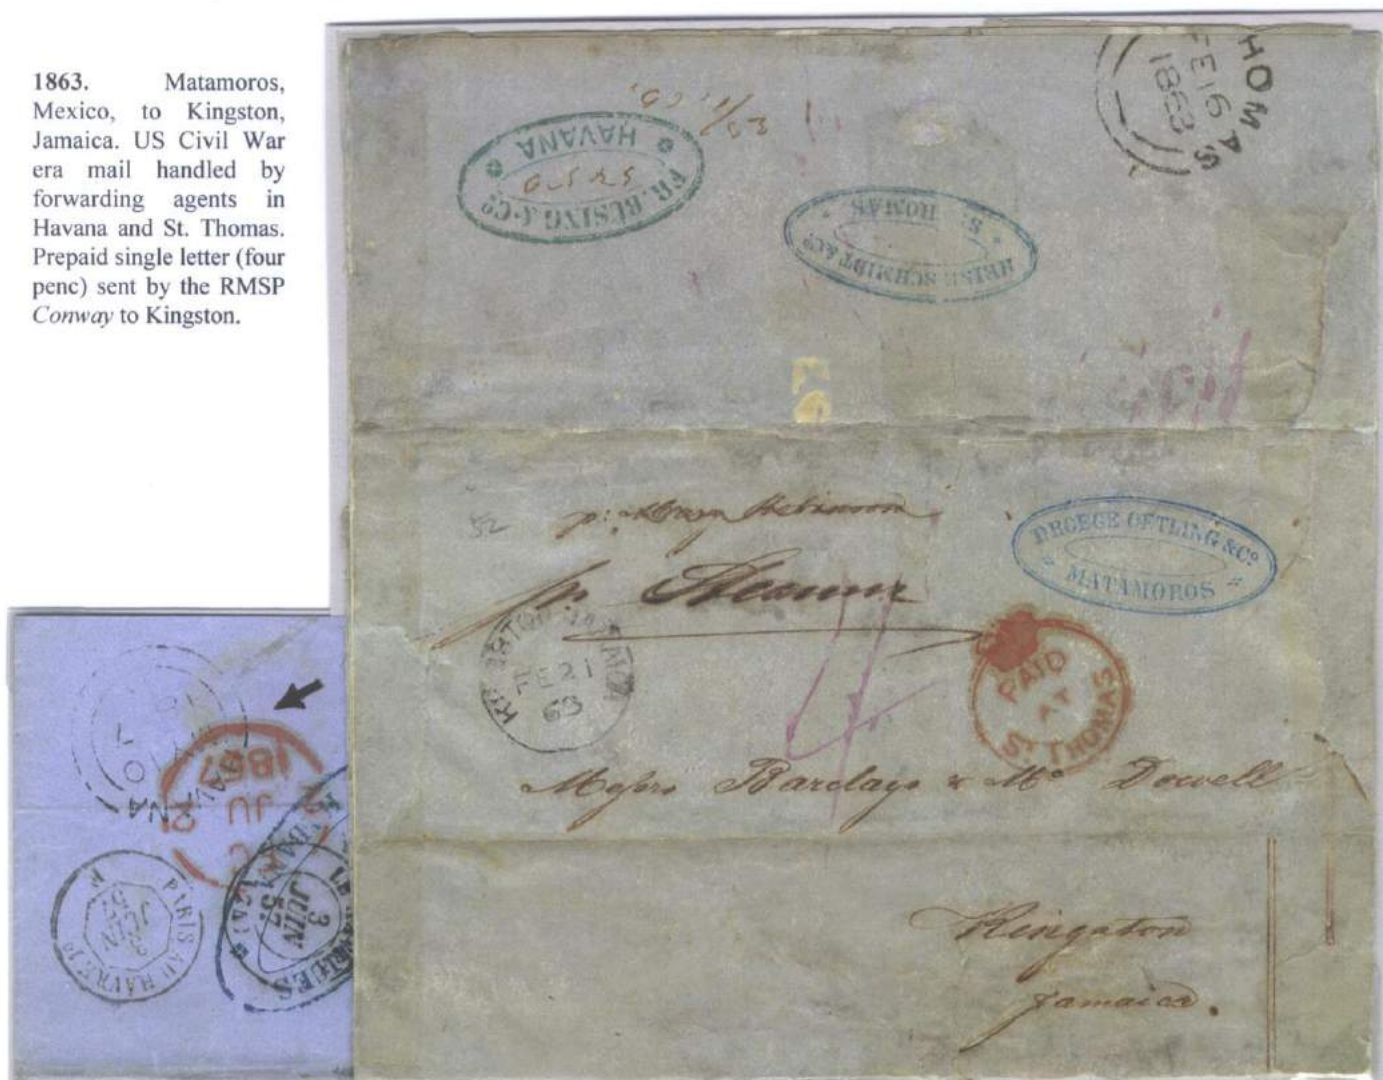 1863. Matamoros,
Mexico, to Kingston,
Jamaica. US Civil War
era mail handled by
forwarding agents in
Havana and St. Thomas.
Prepaid single letter (four
penc) sent by the RMSP
Conway to Kingston.
HOMAS
FE 16
1863
FR. RUSING & Cº
HAVANA
HEISE SCHMIDT & Cº
S. HOMAS
52
p:
pr. Steamer
DROEGE OETLING & Cº
MATAMOROS
KINGSTON JAMAICA
FE 21
63
4
PAID
AT
ST THOMAS
Messrs Barclays & Mc Dowell
Kingston
Jamaica.
1857
JU
2
SAVANNA
PARIS AU HAVRE
3
JUIN
57